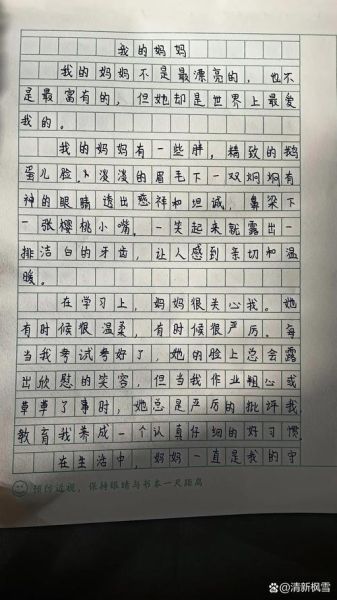 我的妈妈
我的妈妈不是最漂亮的，也不
是最富有的，但她却是世界上最爱
我的。
我的妈妈有一些胖，精致的鹅
蛋儿脸上淡淡的眉毛下一双炯炯有
神的眼睛透出慈祥和坦诚，鼻梁下
一张樱桃小嘴。一笑起来就露出一
排洁白的牙齿，让人感到亲切和温
暖。
在学习上，妈妈很关心我。她
有时候很温柔，有时候很严厉。每
当我考试考好了，她的脸上总会露
出欣慰的笑容，但当我作业粗心或
草草了事时，她总是严厉的批评我，
教育我养成一个认真仔细的好习惯。
在生活中，妈妈一直是我的守
预防近视，保持眼睛与书本一尺距离
@清新枫雪